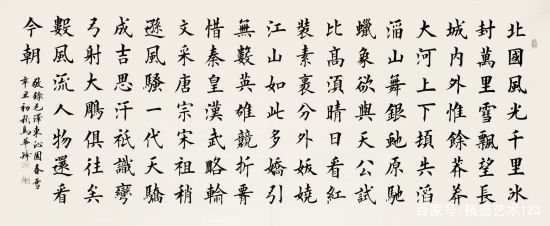 北國風光千里冰
封萬里雪飄望長
城內外惟餘莽莽
大河上下頓失滔
滔山舞銀虵原馳
蠟象欲與天公試
比高須晴日看紅
裝素裹分外妖嬈
江山如此多嬌引
無數英雄競折腰
惜秦皇漢武略輸
文采唐宗宋祖稍
遜風騷一代天驕
成吉思汗祇識彎
弓射大鵰俱往矣
數風流人物還看
今朝
敬錄毛澤東沁園春雪
辛丑初秋馬華
百家号/墨艺术123